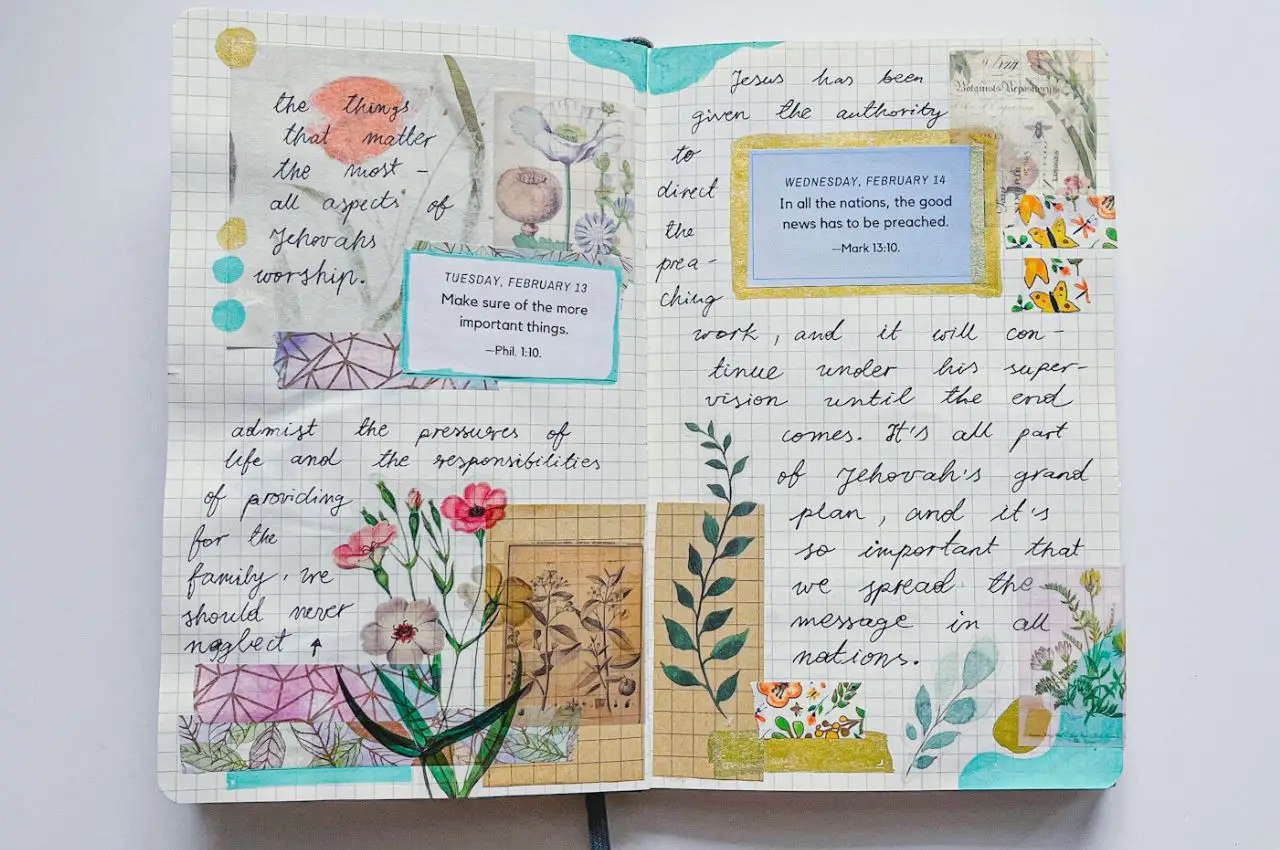 the things
that matter
the most –
all aspects of
Jehovahs
worship.
TUESDAY, FEBRUARY 13
Make sure of the more
important things.
—Phil. 1:10.
admist the pressures of
life and the responsibilities
of providing
for the
family, we
should never
neglect ↑
Jesus has been
given the authority
to
direct
the
prea-
ching
work, and it will con-
tinue under his super-
vision until the end
comes. It's all part
of Jehovah's grand
plan, and it's
so important that
we spread the
message in all
nations.
WEDNESDAY, FEBRUARY 14
In all the nations, the good
news has to be preached.
—Mark 13:10.
Botanists Repository